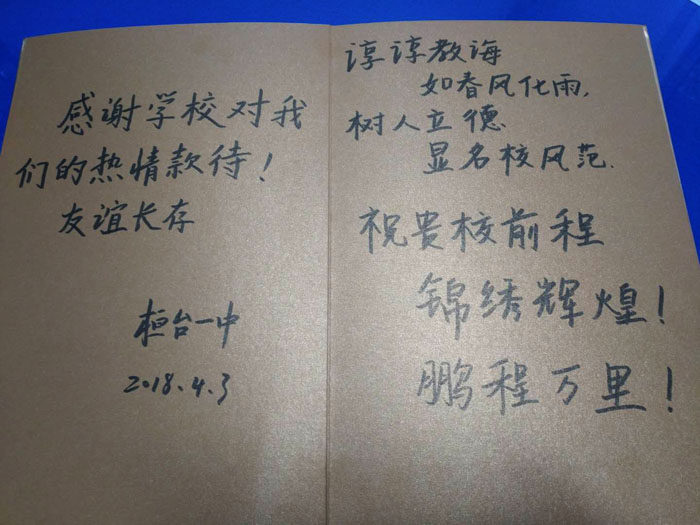 感谢学校对我
们的热情款待!
友谊长存
桓台一中
2018.4.3
谆谆教海
如春风化雨,
树人立德
显名校风范.
祝贵校前程
锦绣辉煌!
鹏程万里!